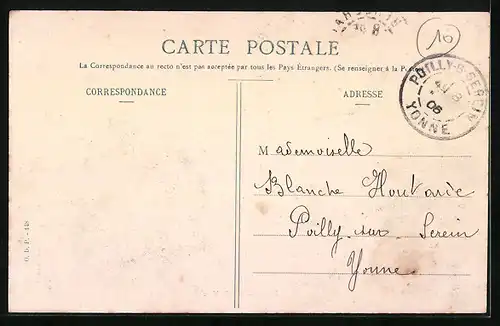 16
CARTE POSTALE
La Correspondance au recto n'est pas acceptée par tous les Pays Étrangers. (Se renseigner à la Poste
CORRESPONDANCE
ADRESSE
POILLY-S-SEREIN
8
06
YONNE
Mademoiselle
Blanche
Poilly sur Serein
Yonne